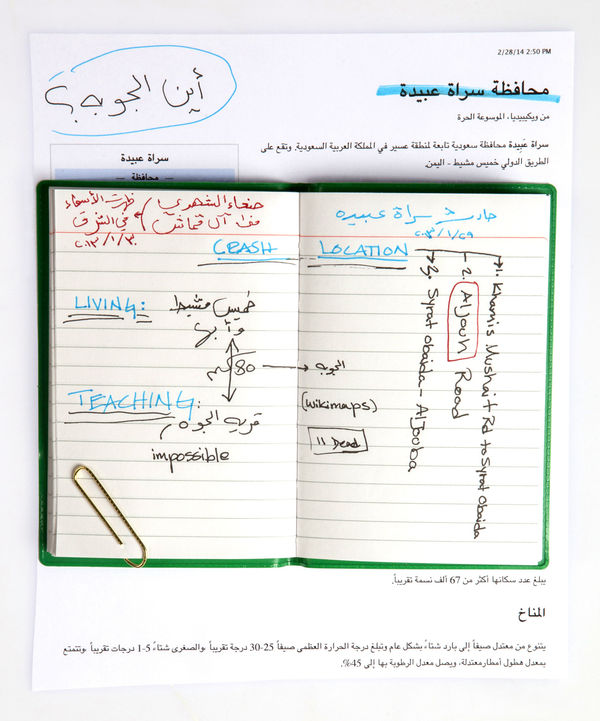 2/28/14 2:50 PM
محافظة سراة عبيدة
من ويكيبيديا، الموسوعة الحرة
سراة عَبِيدة محافظة سعودية تابعة لمنطقة عسير في المملكة العربية السعودية. وتقع على
الطريق الدولي خميس مشيط - اليمن.
أين الجوبه؟
سراة عبيدة
— محافظة —
ظهرت الأسماء
في الشرق
٢٠١٣/١/٣٠
صنعاء الشهري
آل قماش
CRASH LOCATION
LIVING:
خميس مشيط
وأبها
80 كم
TEACHING:
قرية الجوه
impossible
حادث سراة عبيده
٢٠١٣/١/٢٩
1. Khamis Mushait Rd to Syrat Obaida
2. AlJouh Road
3. Syrat Obaida - AlJooba
الجوبه
(Wikimaps)
11 Dead
يبلغ عدد سكانها أكثر من 67 ألف نسمة تقريباً.
المناخ
يتنوع من معتدل صيفاً إلى بارد شتاءً بشكل عام وتبلغ درجة الحرارة العظمى صيفاً 25-30 درجة تقريباً .والصغرى شتاءً 5-1 درجات تقريباً .وتتمتع
بمعدل هطول أمطار معتدلة، ويصل معدل الرطوبة بها إلى 45%.